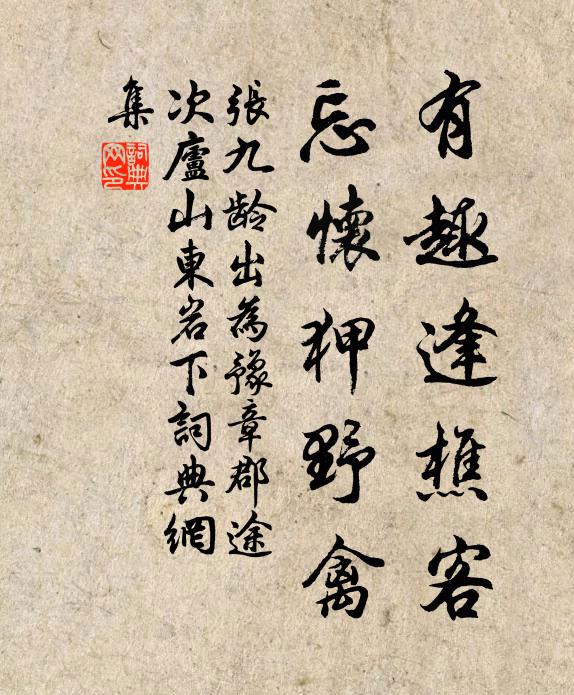 有趣逢樵客
忘懷狎野禽
張九龄出為豫章郡途
次廬山東岩下詞典網
集
詞典
网印